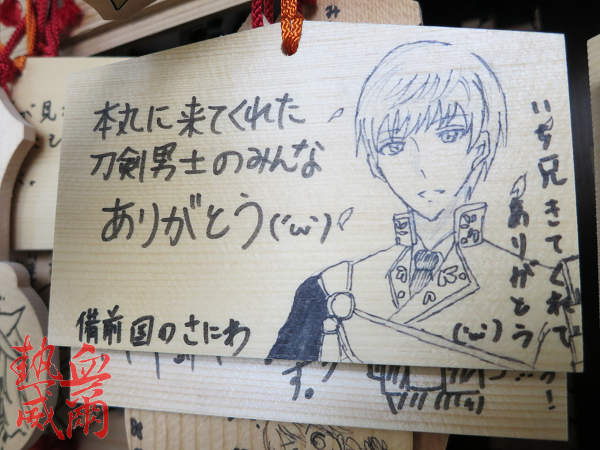 本丸に来てくれた
刀剣男士のみんな
ありがとう('ω')
備前国のさにわ
いち兄きてくれて
ありがとう
('ω')
す。
み
が見
熱血
威爾